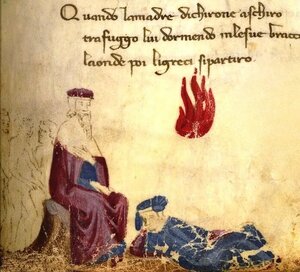 Quando lamadre dichirone aschiro
trafuggo lui dormendo insesue bracc
laonde poi ligreci sipartiro.